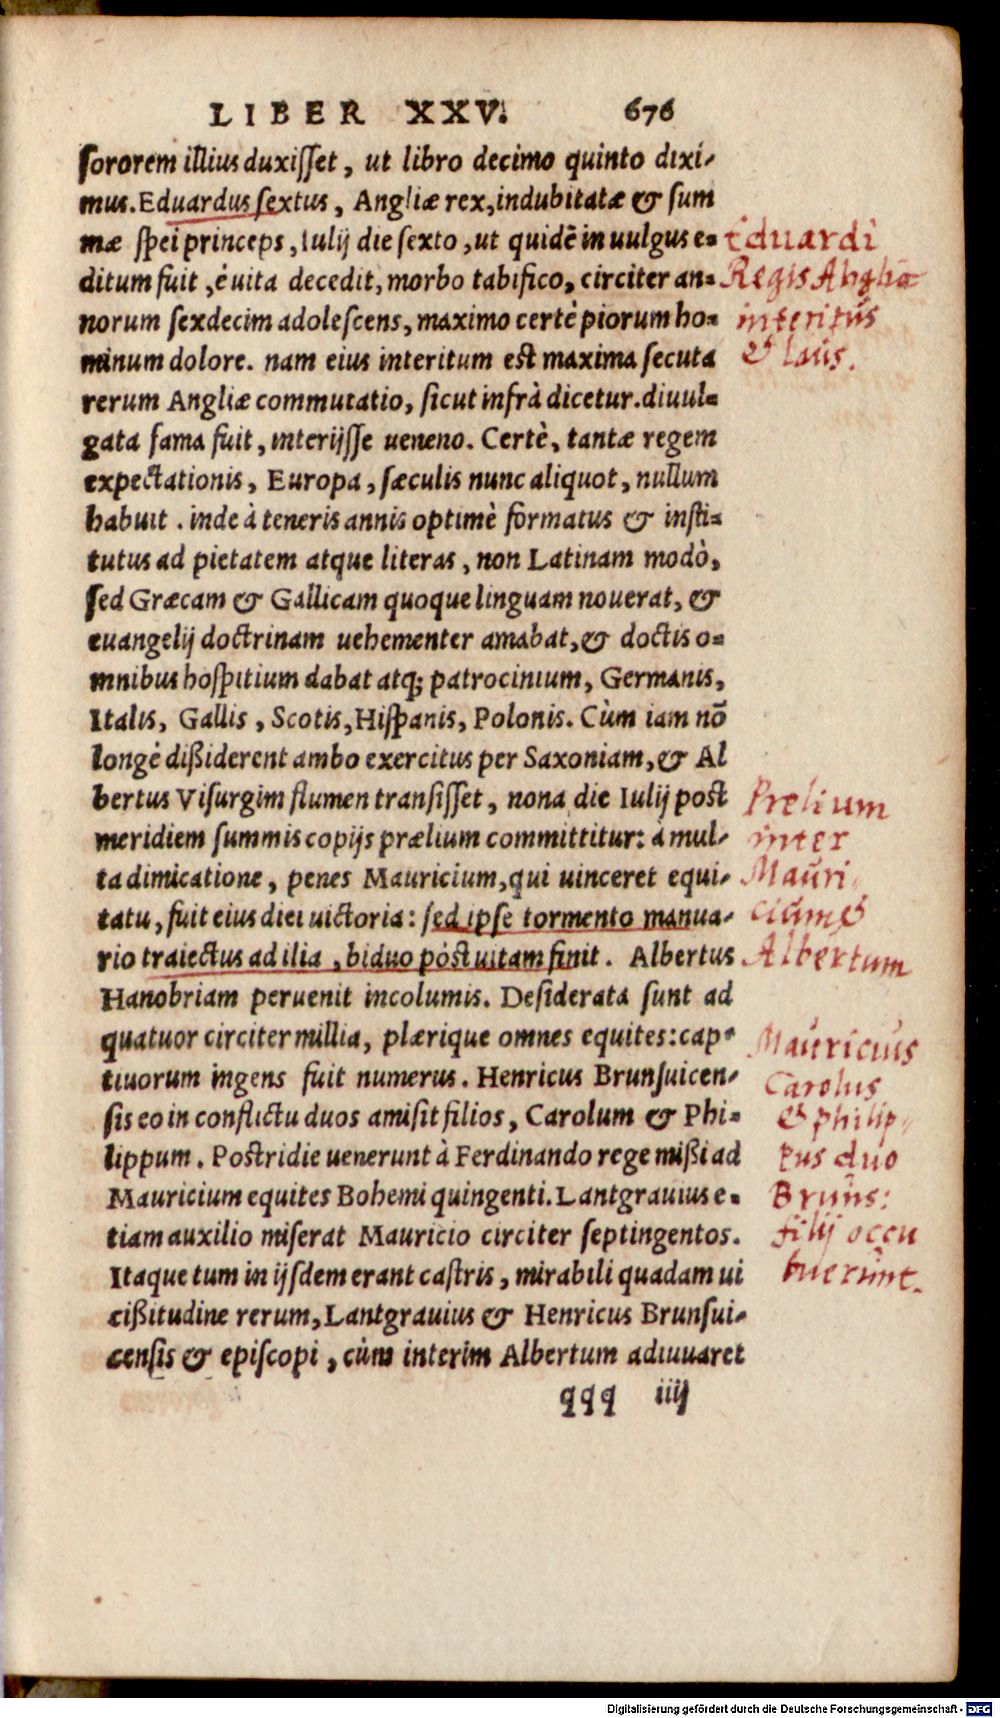 LIBER XXV. 676
sororem illius duxisset, ut libro decimo quinto dixi-
mus. Eduardus sextus, Angliæ rex, indubitatæ & sum
mæ spei princeps, Iulij die sexto, ut quidē in uulgus e-
ditum fuit, è uita decedit, morbo tabifico, circiter an-
norum sexdecim adolescens, maximo certè piorum ho-
minum dolore. nam eius interitum est maxima secuta
rerum Angliæ commutatio, sicut infrà dicetur. diuul-
gata fama fuit, interijsse ueneno. Certè, tantæ regem
expectationis, Europa, sæculis nunc aliquot, nullum
habuit. inde à teneris annis optimè formatus & insti-
tutus ad pietatem atque literas, non Latinam modò,
sed Græcam & Gallicam quoque linguam nouerat, &
euangelij doctrinam uehementer amabat, & doctis o-
mnibus hospitium dabat atq; patrocinium, Germanis,
Italis, Gallis, Scotis, Hispanis, Polonis. Cùm iam nō
longè dißiderent ambo exercitus per Saxoniam, & Al
bertus Visurgim flumen transisset, nona die Iulij post
meridiem summis copijs prælium committitur: à mul-
ta dimicatione, penes Mauricium, qui uinceret equi-
tatu, fuit eius diei uictoria: sed ipse tormento manua-
rio traiectus ad ilia, biduo pòst uitam finit. Albertus
Hanobriam peruenit incolumis. Desiderata sunt ad
quatuor circiter millia, plærique omnes equites: cap-
tiuorum ingens fuit numerus. Henricus Brunsuicen-
sis eo in conflictu duos amisit filios, Carolum & Phi-
lippum. Postridie uenerunt à Ferdinando rege mißi ad
Mauricium equites Bohemi quingenti. Lantgrauius e-
tiam auxilio miserat Mauricio circiter septingentos.
Itaque tum in ijsdem erant castris, mirabili quadam ui
cißitudine rerum, Lantgrauius & Henricus Brunsui-
censis & episcopi, cùm interim Albertum adiuuaret
qqq iiij
Eduardi
Regis Angliæ
interitus
& laus.
Prelium
inter
Mauri-
cium &
Albertum
Mauricius
Carolus
& philip-
pus duo
Bruns:
filij occu
buerunt.
Digitalisierung gefördert durch die Deutsche Forschungsgemeinschaft - DFG